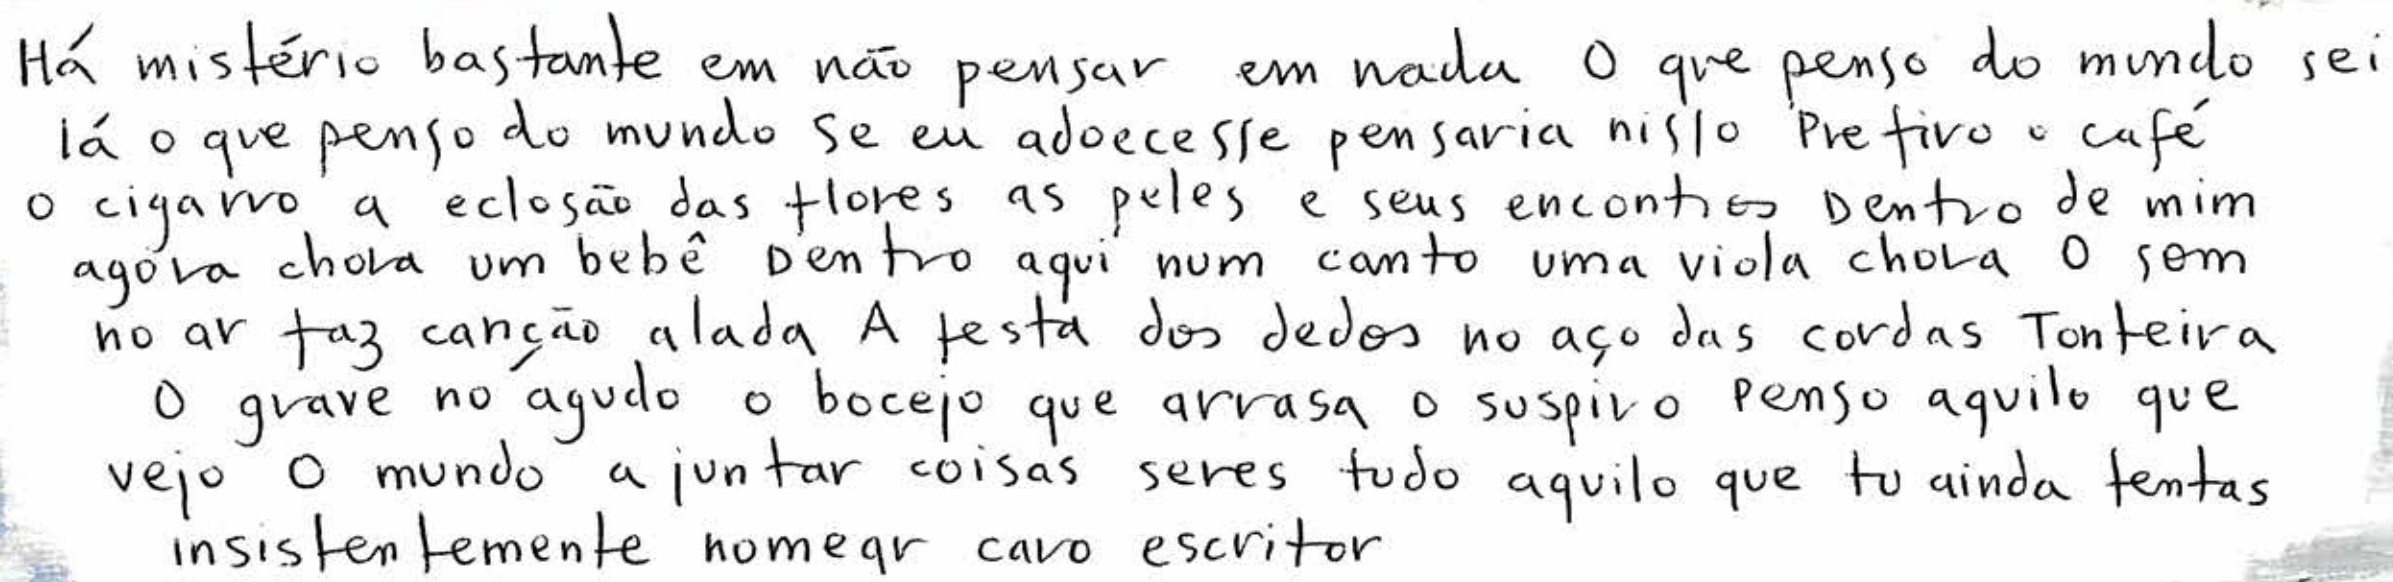 Há mistério bastante em não pensar em nada O que penso do mundo sei
lá o que penso do mundo se eu adoecesse pensaria nisso Prefiro o café
o cigarro a eclosão das flores as peles e seus encontros Dentro de mim
agora chora um bebê Dentro aqui num canto uma viola chora O som
no ar faz canção alada A festa dos dedos no aço das cordas Tonteira
O grave no agudo o bocejo que arrasa o suspiro Penso aquilo que
vejo O mundo a juntar coisas seres tudo aquilo que tu ainda tentas
insistentemente nomear caro escritor